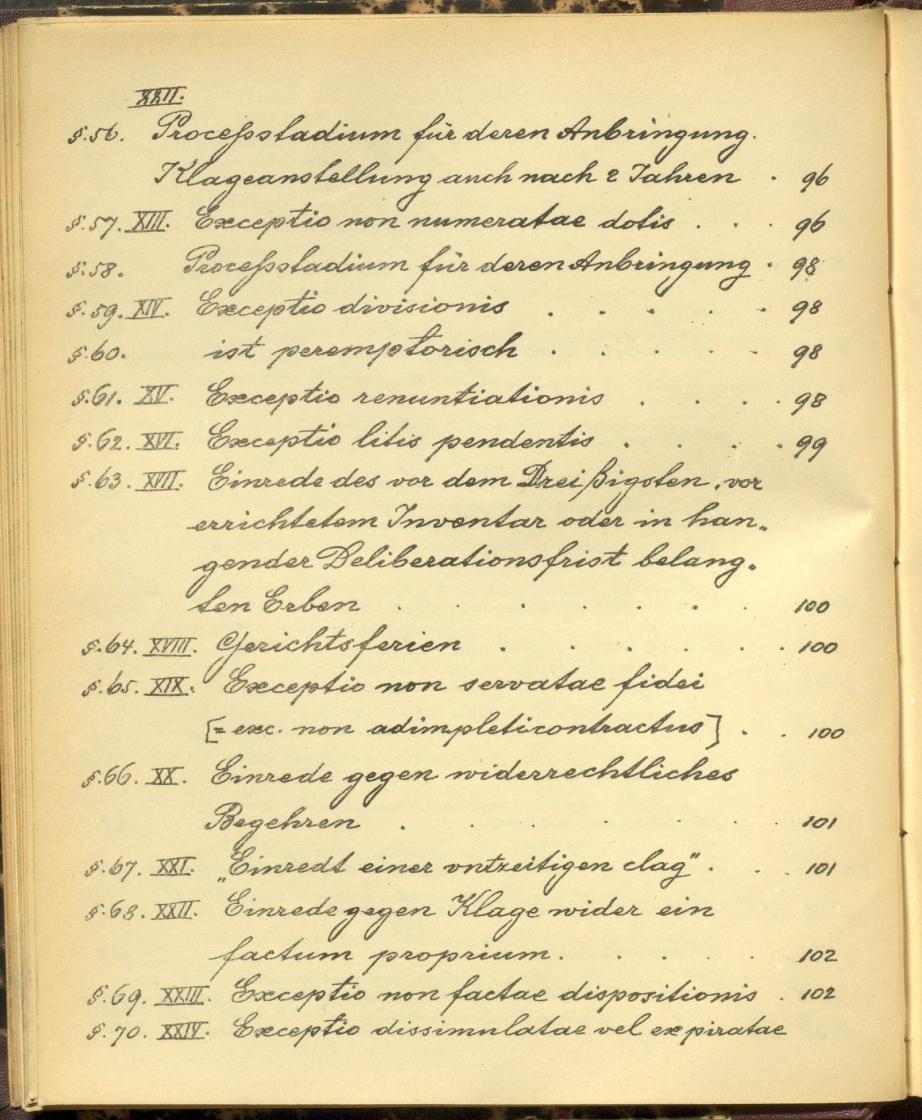 XXII.
§.56. Proceßstadium für deren Anbringung.
Klageanstellung auch nach 2 Jahren . 96
§.57. XIII. Exceptio non numeratae dotis . . . 96
§.58. Proceßstadium für deren Anbringung . 98
§.59. XIV. Exceptio divisionis . . . . . 98
§.60. ist peremptorisch . . . . . 98
§.61. XV. Exceptio renuntiationis . . . . 98
§.62. XVI. Exceptio litis pendentis . . . . 99
§.63. XVII. Einrede des vor dem Dreißigsten, vor
errichtetem Inventar oder in han„
gender Deliberationsfrist belang„
ten Erben . . . . . . . 100
§.64. XVIII. Gerichtsferien . . . . . . 100
§.65. XIX. Exceptio non servatae fidei
[= exc. non adimpleti contractus] . . 100
§.66. XX. Einrede gegen widerrechtliches
Begehren . . . . . . 101
§.67. XXI. „Einredt einer vntzeitigen clag" . . . 101
§.68. XXII. Einrede gegen Klage wider ein
factum proprium . . . . . 102
§.69. XXIII. Exceptio non factae dispositionis . 102
§.70. XXIV. Exceptio dissimulatae vel expiratae